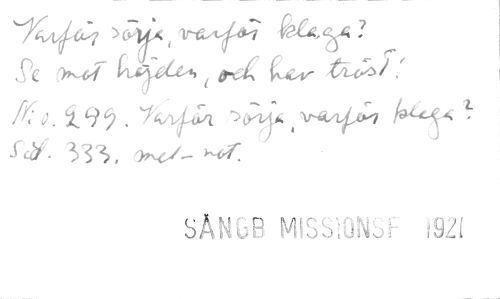 Varför sörja, varför klaga?
Se mot höjden, och hav tröst!
N:o. 299. Varför sörja, varför klaga?
Sid. 333. mel-not.
SÅNGB MISSIONSF 1921